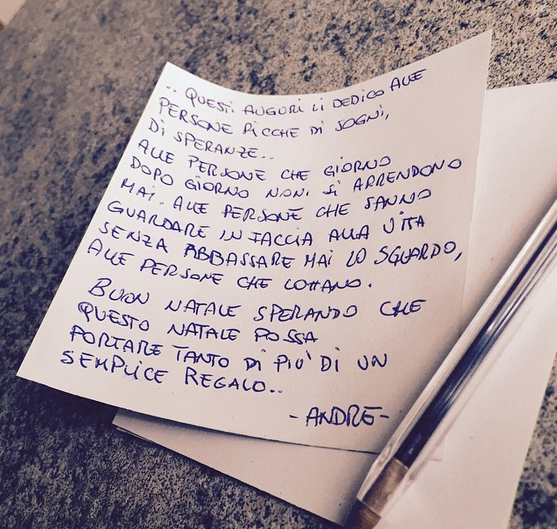 .. QUESTI AUGURI LI DEDICO ALLE
PERSONE RICCHE DI SOGNI,
DI SPERANZE..
ALLE PERSONE CHE GIORNO
DOPO GIORNO NON SI ARRENDONO
MAI. ALLE PERSONE CHE SANNO
GUARDARE IN FACCIA ALLA VITA
SENZA ABBASSARE MAI LO SGUARDO,
ALLE PERSONE CHE LOTTANO.
BUON NATALE SPERANDO CHE
QUESTO NATALE POSSA
PORTARE TANTO DI PIU' DI UN
SEMPLICE REGALO..
-ANDRE-